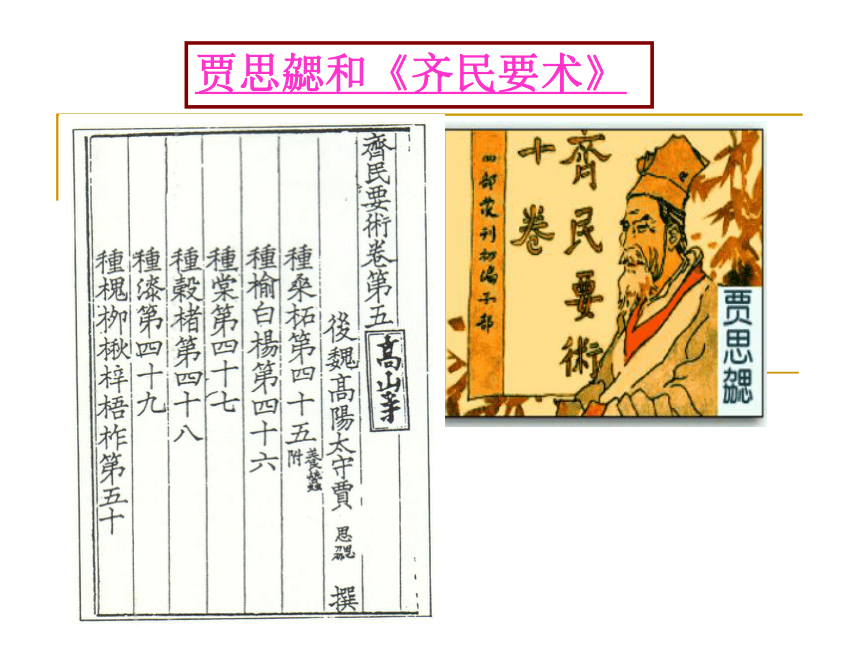 贾思勰和《齐民要术》
齊民要術卷第五
高山寺
後魏髙陽太守賈思勰撰
種桑柘第四十五養蠶附
種榆白楊第四十六
種棠第四十七
種榖楮第四十八
種漆第四十九
種槐栁楸梓梧柞第五十
齊民要術
十卷
四部叢刊初编子部
贾思勰